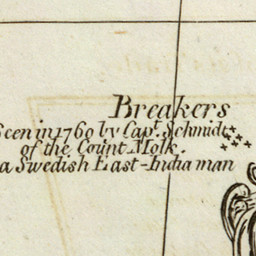 Breakers
Seen in 1760 by Capt. Schmidt
of the Count Molk.
a Swedish East-India man